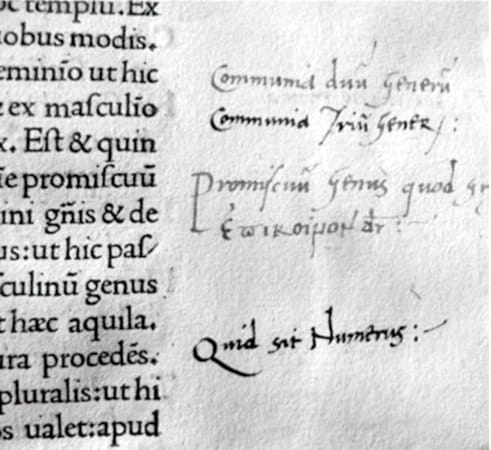 oc templu. Ex
iobus modis.
eminīo ut hic
ex maſculīo
x. Eſt & quin
īe promiſcuū
ini gn̄is & de
us: ut hic paſ
ſculinū genus
t hæc aquila.
ura procedēs.
pluralis: ut hi
os ualet: apud
Communia duū generū
Communia Triū gener:
Promiſcuū genus quod
ἐπίκοινον dr̄:
Quid sit Numerus: